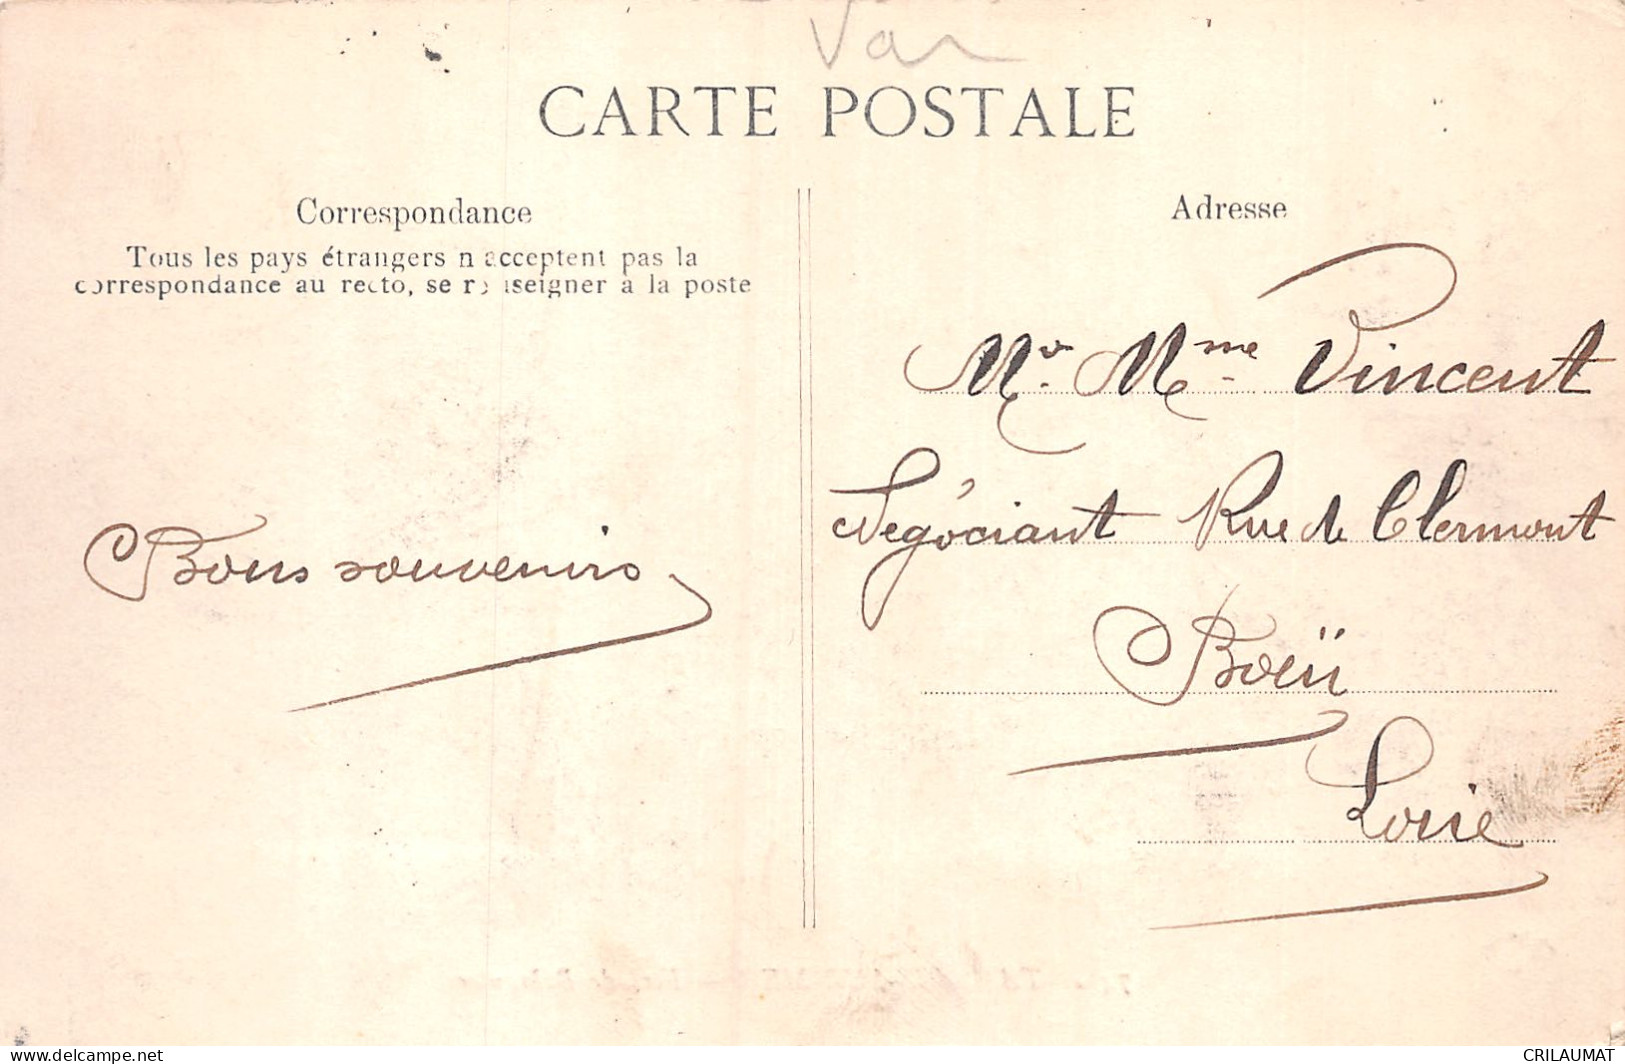 Var
CARTE POSTALE
Correspondance
Tous les pays étrangers n acceptent pas la
correspondance au recto, se renseigner a la poste
Bons souvenirs
Adresse
Mr. Mme Vincent
Négociant Rue de Clermont
Boën
Loire
www.delcampe.net
CRILAUMAT